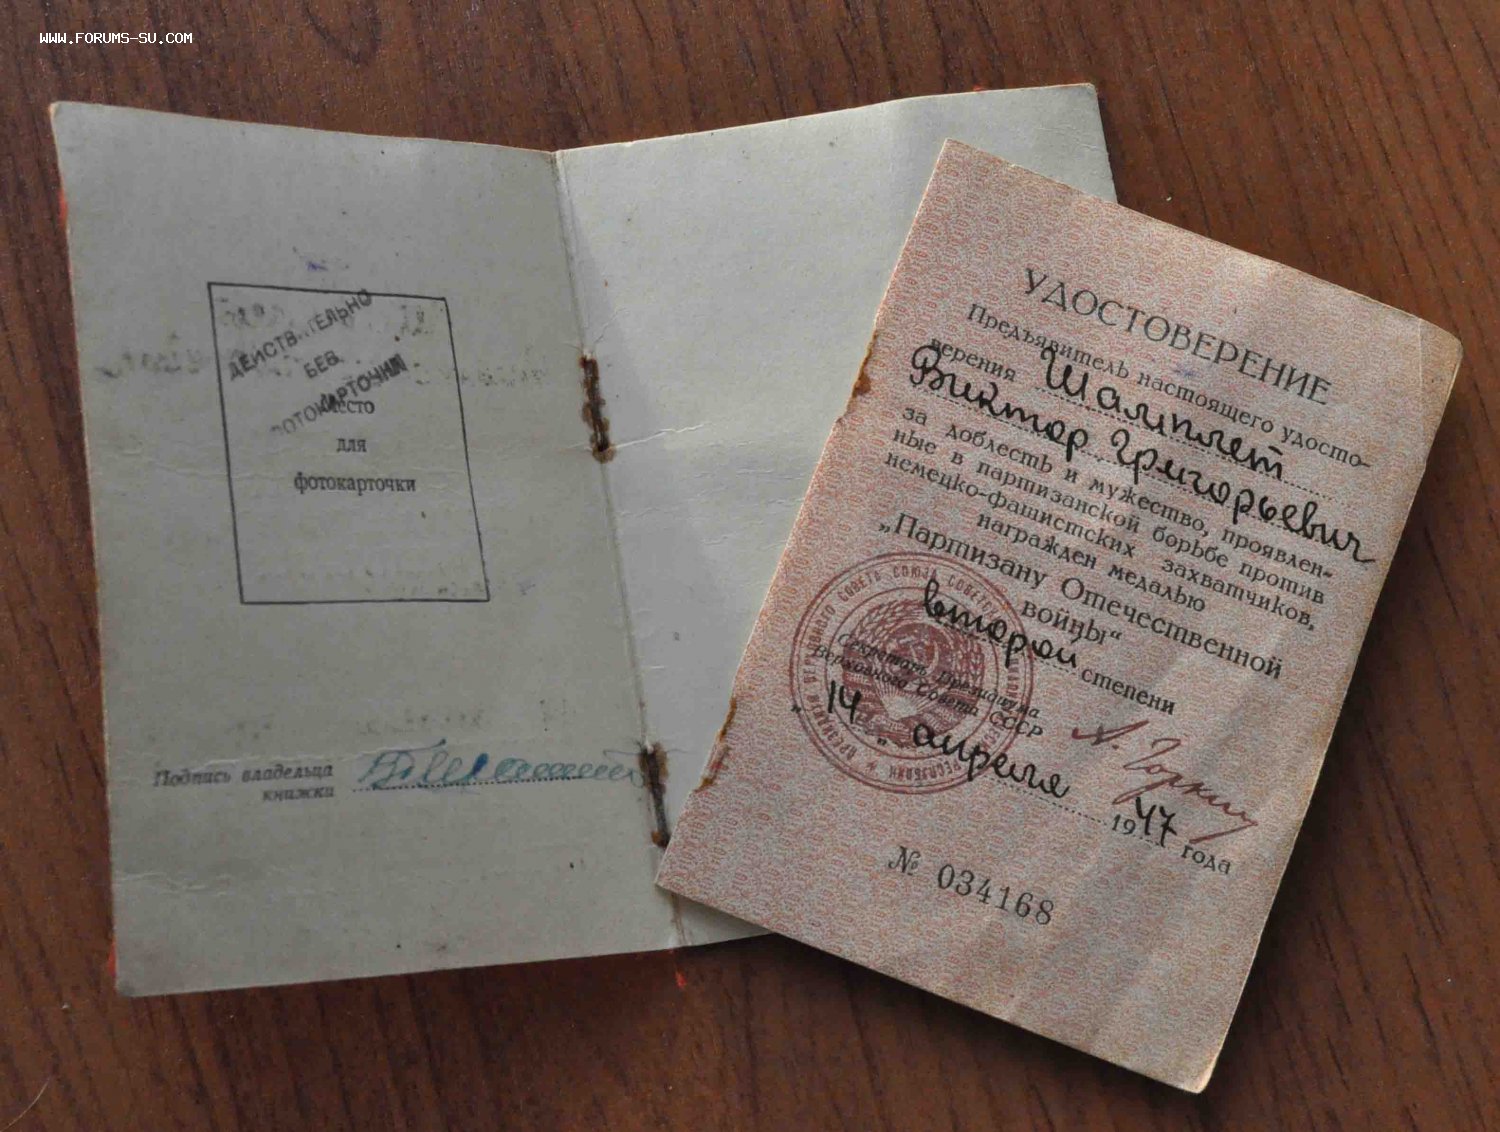 WWW.FORUMS-SU.COM
ДЕЙСТВ..ТЕЛЬНО
БЕЗ
ФОТОКАРТОЧКИ
Место
для
фотокарточки
Подпись владельца
книжки
УДОСТОВЕРЕНИЕ
Предъявитель настоящего удосто-
верения Шамплет
Виктор Григорьевич
за доблесть и мужество, проявлен-
ные в партизанской борьбе против
немецко-фашистских захватчиков,
награжден медалью
„Партизану Отечественной
войны“
второй степени
Секретарь Президиума
Верховного Совета СССР
А. Горкин
14 „ апреля 1947 года
№ 034168